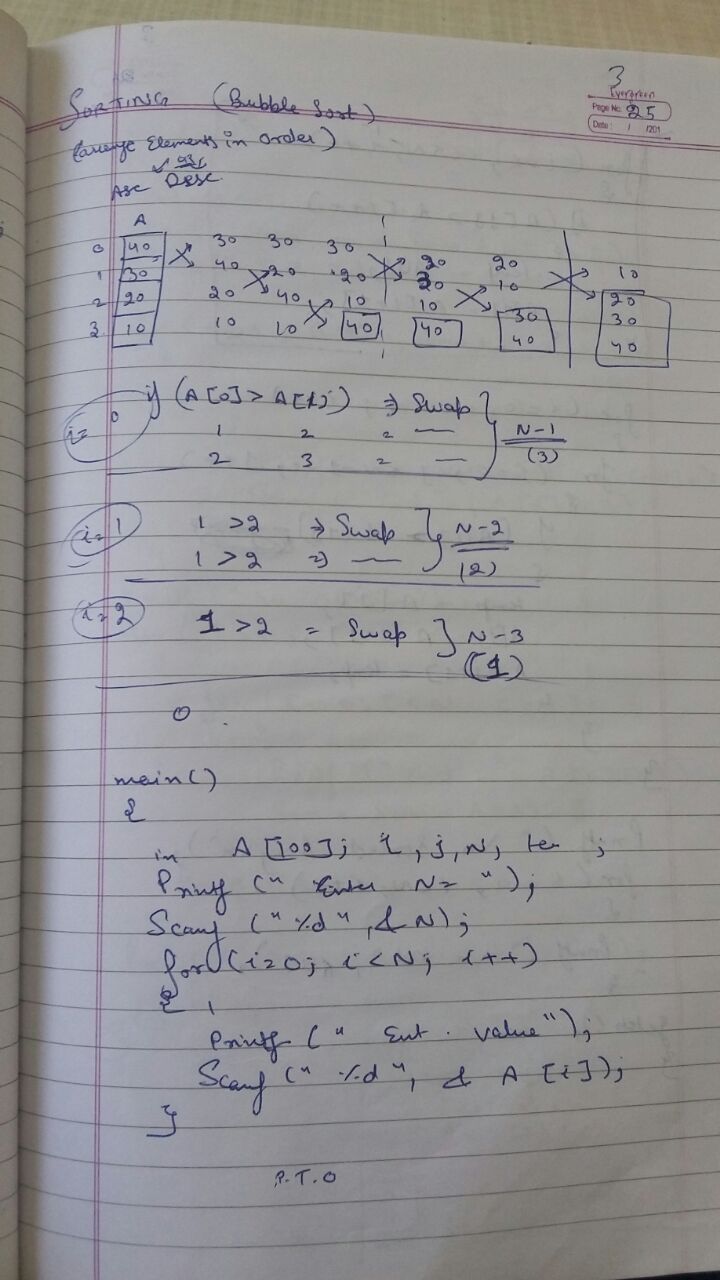 3
Evergreen
Page No. 25
Date: / /201
SORTING (Bubble Sort)
(arrange Elements in order)
Asc Desc
A
0 40 30 30 30 20 20 10
1 30 40 20 20 30 10 20
2 20 20 40 10 10 30 30
3 10 10 10 40 40 40 40
i=0 if (A[0]>A[1]) ⇒ Swap } N-1
1 2 = — (3)
2 3 = —
i=1 1 >2 ⇒ Swap } N-2
1 >2 ⇒ — (2)
i=2 1 >2 = Swap } N-3
(1)
0
main()
{
in A[100]; i, j, N, te ;
Printf (" Enter N= ");
Scanf ("%d", &N);
for (i=0; i<N; i++)
{
Printf (" Ent. value");
Scanf ("%d", & A [i]);
}
P.T.O